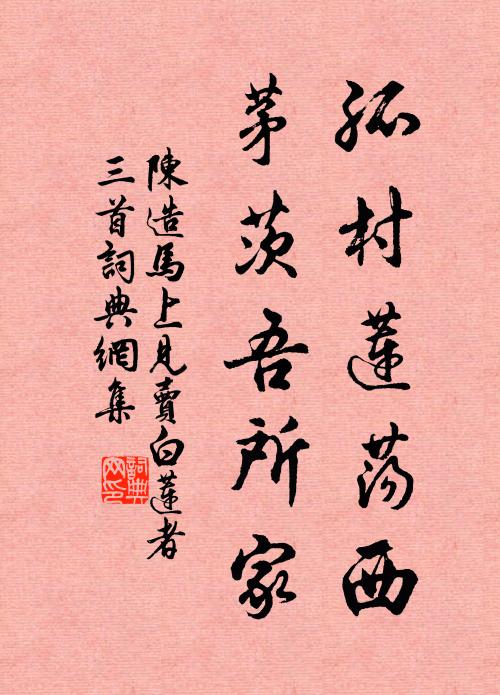 孤村蓮蕩西
茅茨吾所家
陳造馬上見賣白蓮者
三首詞典網集
詞典网印